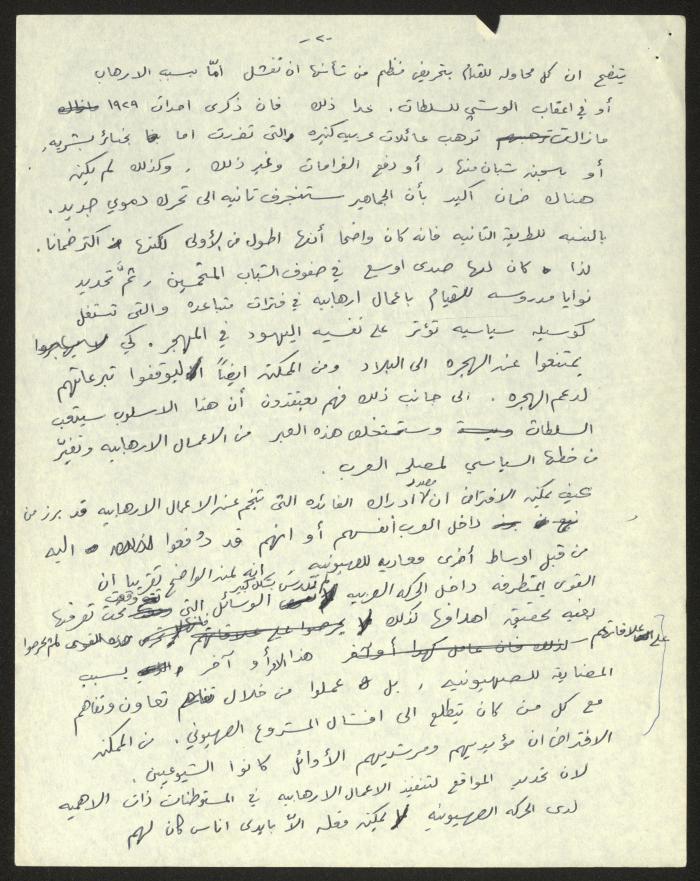 -٢-
يتضح ان كل محاوله للقيام بتحريض منظم من شأنها ان تفشل امّا بسبب الارهاب
أو في اعقاب الوشي للسلطات. عدا ذلك فان ذكرى احداث ١٩٢٩
مازالت توهب عائلات عربيه كثيره والتي تضررت اما بخسائر بشريه،
أو بسجن شبان منها، أو دفع الغرامات وغير ذلك، وكذلك لم يكن
هناك ضمان اكيد بأن الجماهير ستنجرف ثانيه الى تحرك دموي جديد.
بالنسبه للطريقة الثانيه فانه كان واضحا أنها اطول من الأولى لكنها اكثر ضمانا.
لذا كان لها صدى اوسع في صفوف الشباب المتحمسين، ثمّ تحديد
نوايا مدروسه للقيام باعمال ارهابيه في فترات متباعده والتي تستغل
كوسيله سياسيه تؤثر على نفسيه اليهود في المهجر. كي
يمتنعوا عن الهجره الى البلاد ومن الممكن ايضاً ليوقفوا تبرعاتهم
لدعم الهجره. الى جانب ذلك فهم يعتقدون أن هذا الاسلوب سيتعب
السلطات وستستخلص هذه العبر من الاعمال الارهابيه وتغيّر
من خطها السياسي لمصلحة العرب.
كيف يمكن الافتراض ان مصدر ادراك الفائده التي تنجم عن الاعمال الارهابيه قد برز من
داخل العرب أنفسهم أو انهم قد دُفعوا اليه
من قبل اوساط أخرى معاديه للصهيونيه انه لمن الواضح تقريبا ان
القوى المتطرفه داخل الحركه العربيه تدرس بشكل كبير الوسائل التي وقعت تحت تصرفها
بغيه تحقيق اهدافها كذلك هذه القوى لم يحرصوا
على علاقاتهم هذا أو آخر بسبب
المضادة للصهيونيه، بل عملوا من خلال تعاون وتفاهم
مع كل من كان يتطلع الى افشال المشروع الصهيوني. من الممكن
الافتراض ان مؤيديهم ومرشديهم الأوائل كانوا الشيوعيين.
لان تحديد المواقع لتنفيذ الاعمال الارهابيه في المستوطنات ذات الاهميه
لدى الحركه الصهيونيه لا يمكن فعله الاّ بايدى اناس كان لهم